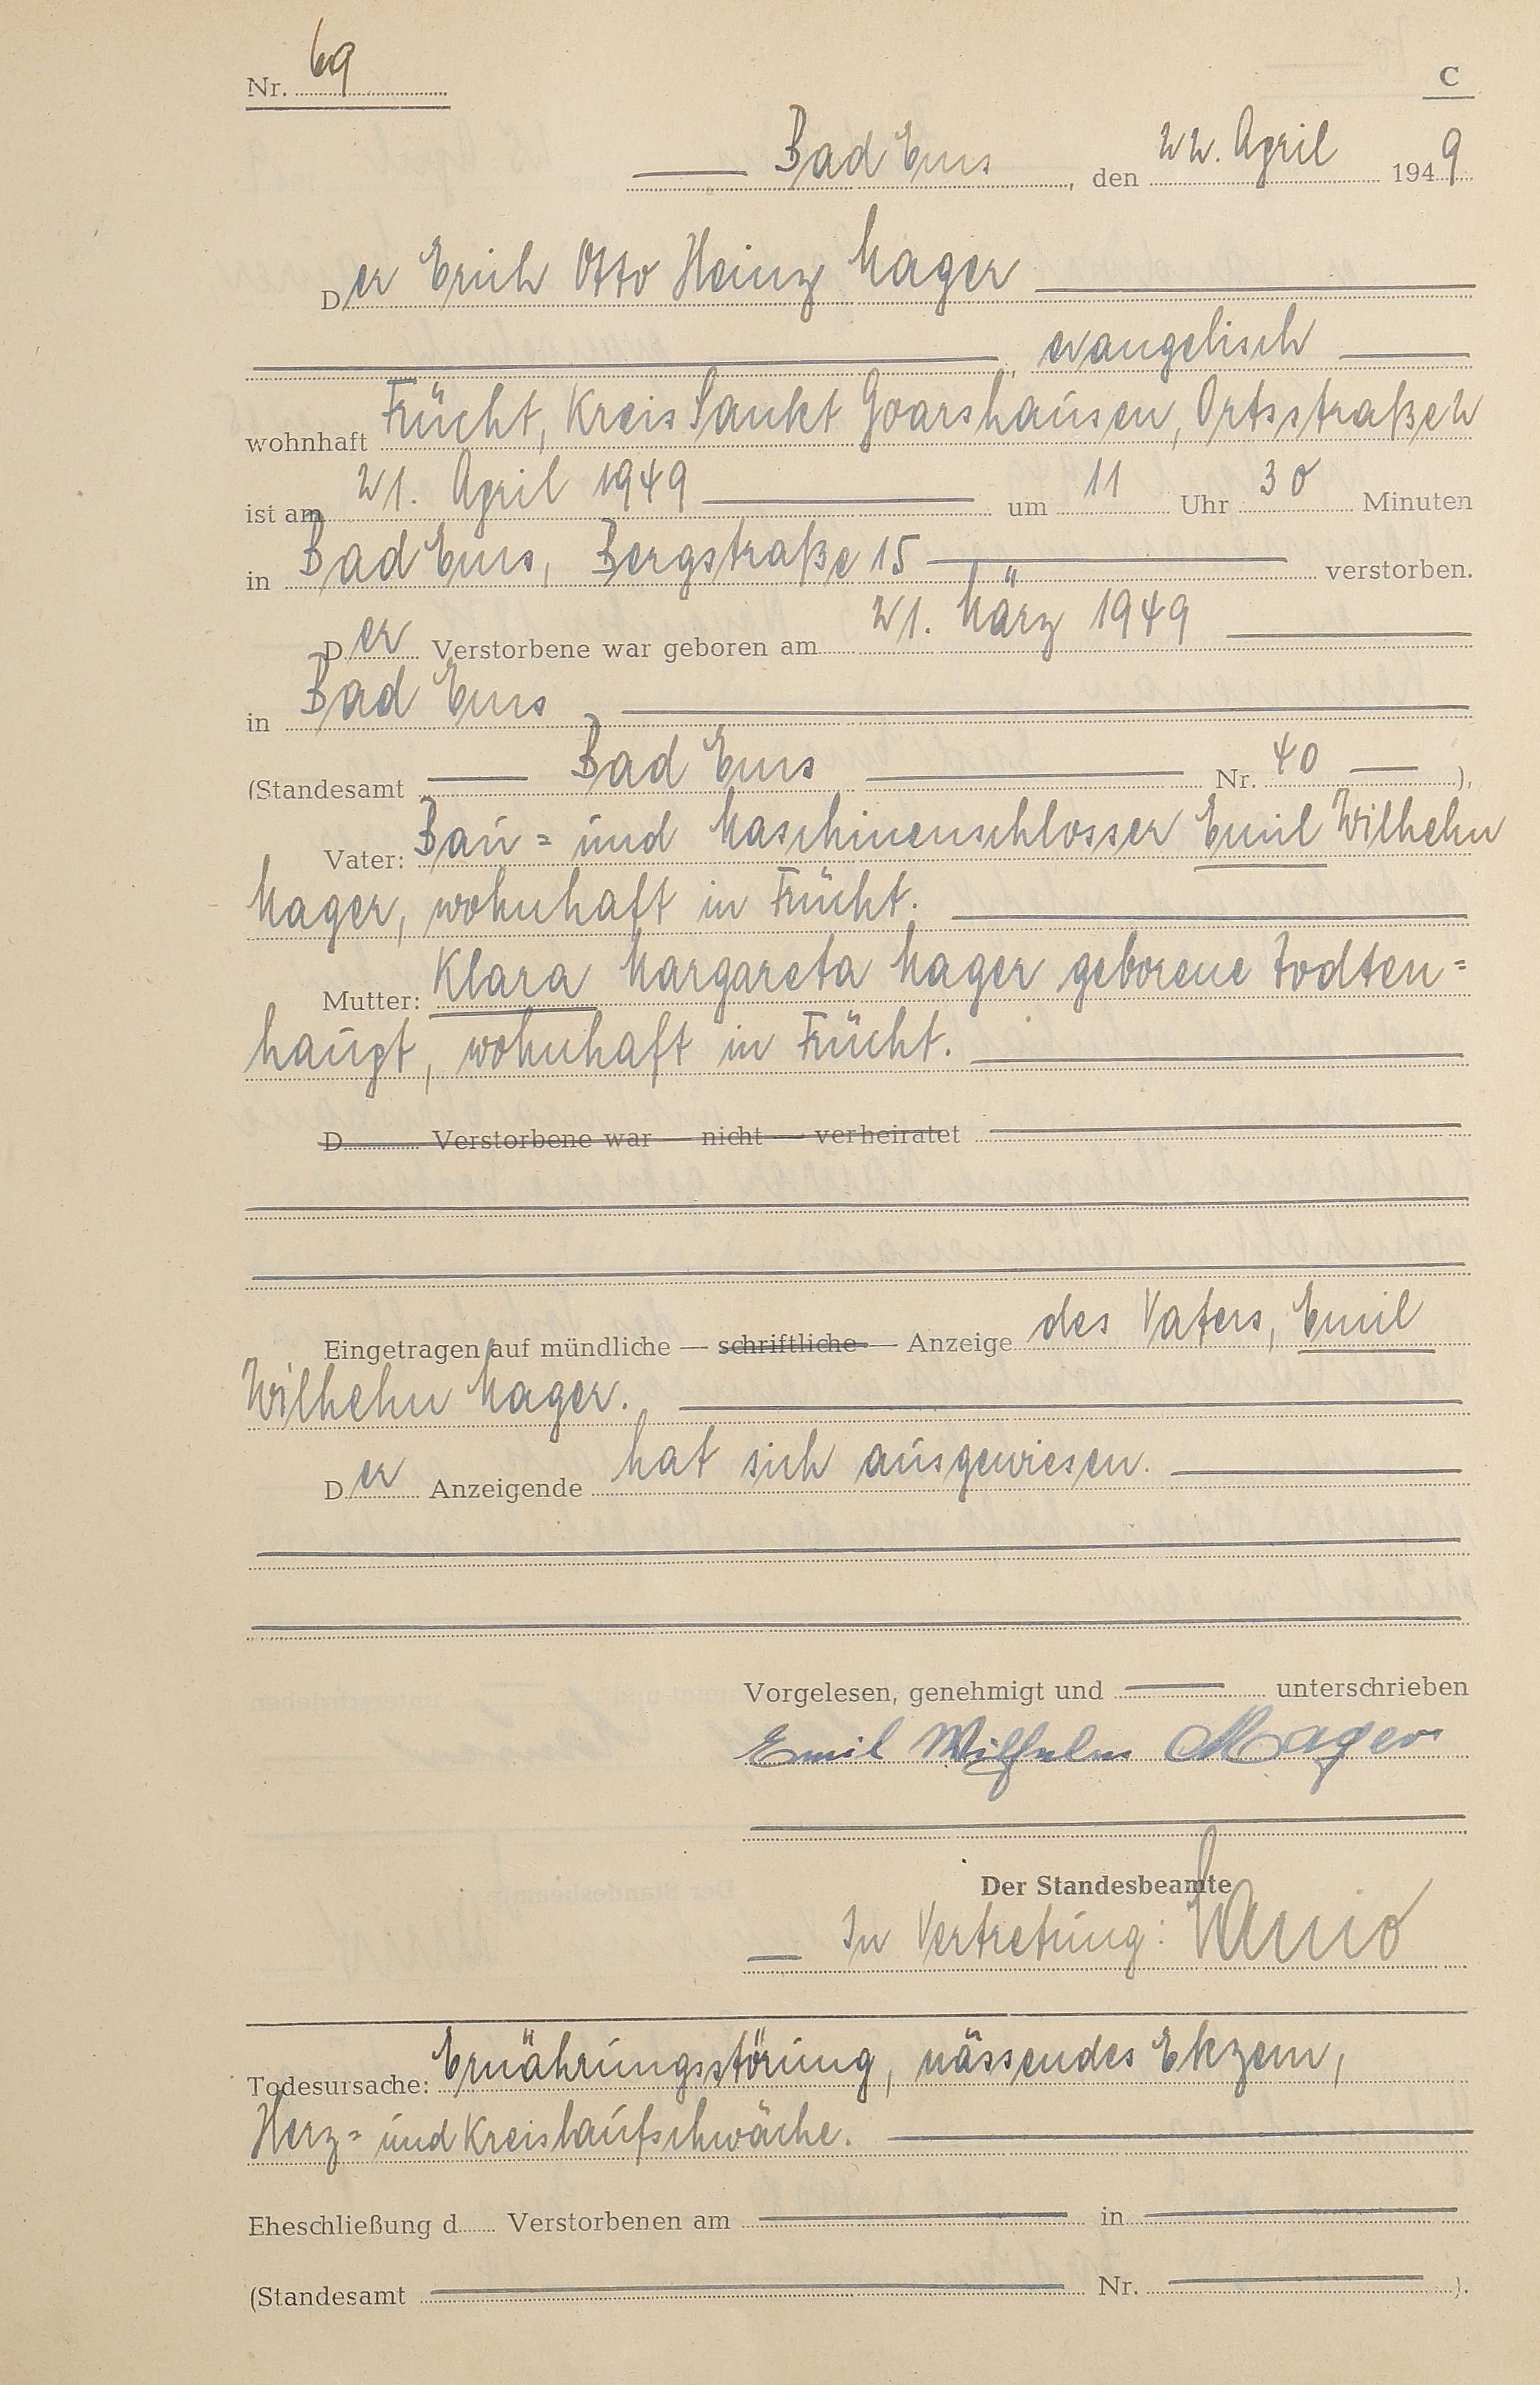 Nr. 69
C
Bad Ems, den 22. April 1949
Der Erich Otto Heinz Mager
, evangelisch
wohnhaft Frücht, Kreis Sankt Goarshausen, Ortsstraße 2
ist am 21. April 1949 um 11 Uhr 30 Minuten
in Bad Ems, Bergstraße 15 verstorben.
Der Verstorbene war geboren am 21. März 1949
in Bad Ems
(Standesamt Bad Ems Nr. 40 ),
Vater: Bau= und Maschinenschlosser Emil Wilhelm
Mager, wohnhaft in Frücht.
Mutter: Klara Margareta Mager geborene Todten=
haupt, wohnhaft in Frücht.
D Verstorbene war — nicht — verheiratet
Eingetragen auf mündliche — schriftliche — Anzeige des Vaters, Emil
Wilhelm Mager.
Der Anzeigende hat sich ausgewiesen.
Vorgelesen, genehmigt und — unterschrieben
Emil Wilhelm Mager
Der Standesbeamte
In Vertretung:
Todesursache: Ernährungsstörung, nässendes Ekzem,
Herz= und Kreislaufschwäche.
Eheschließung d Verstorbenen am in
(Standesamt Nr. ).